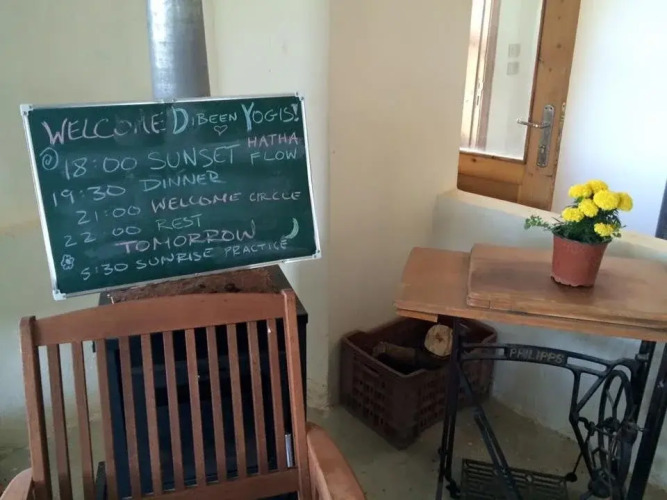 WELCOME DIBEEN YOGIS!
@ 18:00 SUNSET HATHA FLOW
19:30 DINNER
21:00 WELCOME CIRCLE
22:00 REST
TOMORROW
5:30 SUNRISE PRACTICE
PHILIPPS